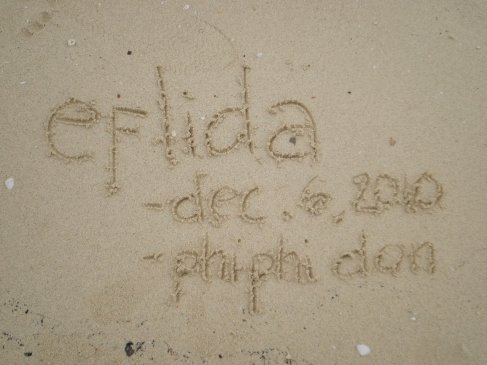 eflida
-dec.6,2010
-phiphi don